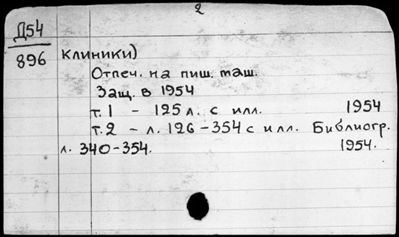 2
Д54
896
клиники)
Отпеч. на пиш. маш.
Защ. в 1954
т. 1 - 125 л. с илл. 1954
т. 2 - л. 126-354 с илл. Библиогр.
л. 340-354. 1954.